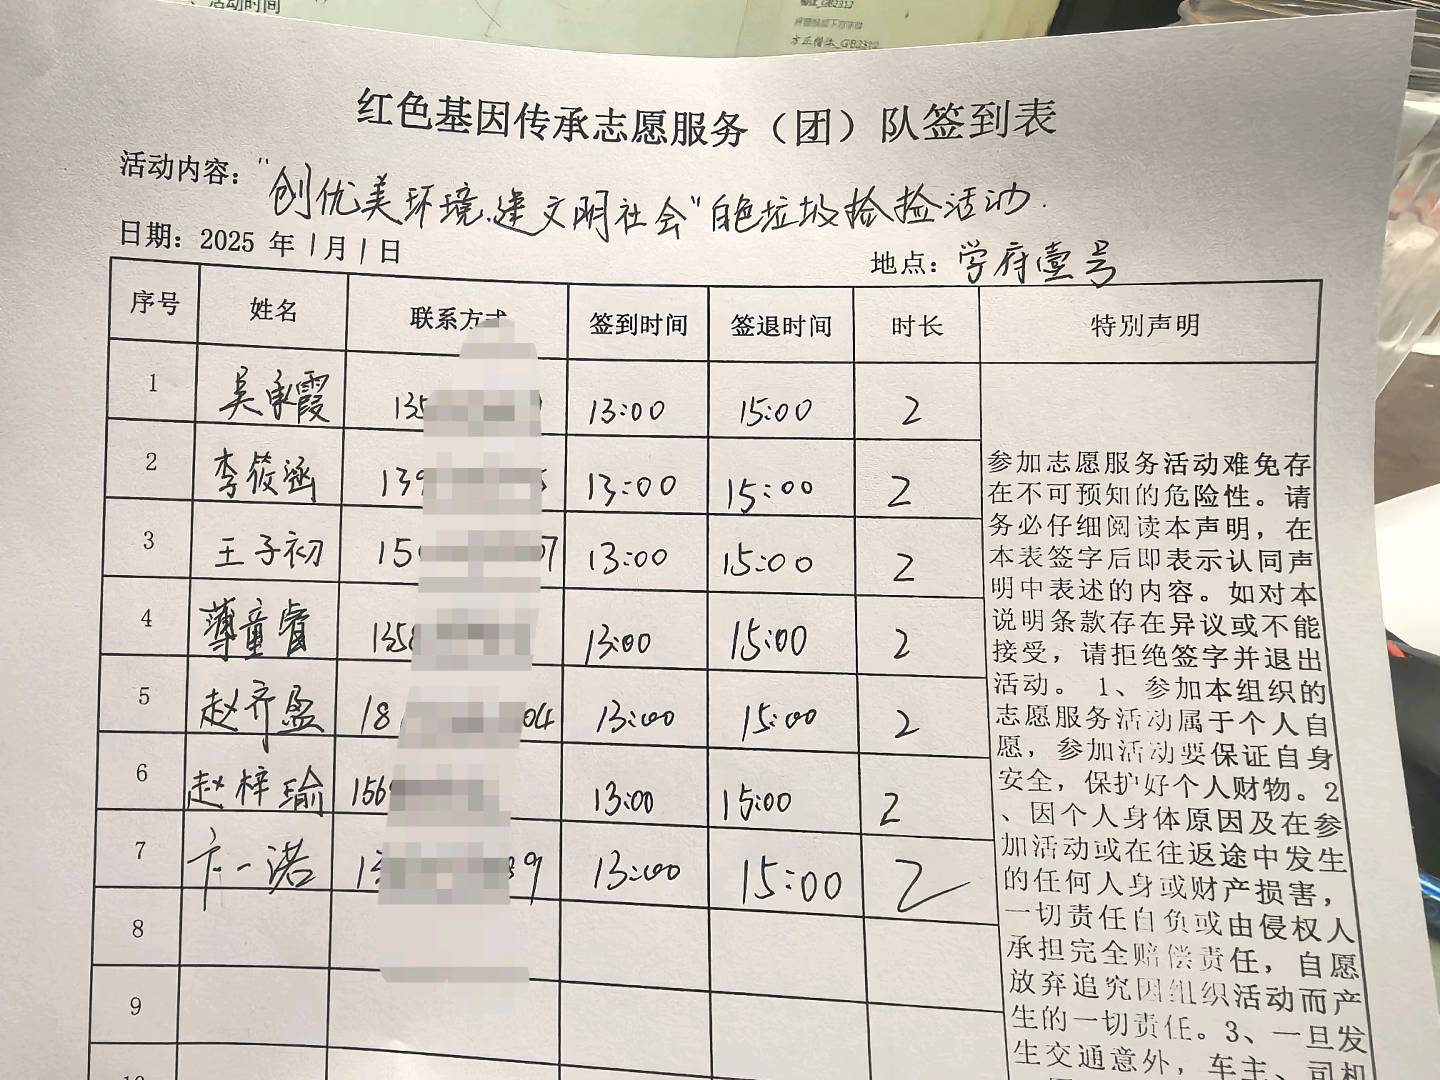 活动时间
方正楷体_GB2312
红色基因传承志愿服务（团）队签到表
活动内容："创优美环境、建文明社会"白色垃圾捡捡活动.
日期：2025 年 1 月 1 日
地点：学府壹号
序号 姓名 联系方式 签到时间 签退时间 时长 特别声明
1 吴承霞 135 13:00 15:00 2
2 李筱涵 139 13:00 15:00 2
3 王子初 15 07 13:00 15:00 2
4 薄童睿 1358 13:00 15:00 2
5 赵齐盈 18 04 13:00 15:00 2
6 赵梓瑜 156 13:00 15:00 2
7 卞一诺 13 39 13:00 15:00 2
8
9
10
参加志愿服务活动难免存
在不可预知的危险性。请
务必仔细阅读本声明，在
本表签字后即表示认同声
明中表述的内容。如对本
说明条款存在异议或不能
接受，请拒绝签字并退出
活动。1、参加本组织的
志愿服务活动属于个人自
愿，参加活动要保证自身
安全，保护好个人财物。2
、因个人身体原因及在参
加活动或在往返途中发生
的任何人身或财产损害，
一切责任自负或由侵权人
承担完全赔偿责任，自愿
放弃追究因组织活动而产
生的一切责任。3、一旦发
生交通意外，车主、司机